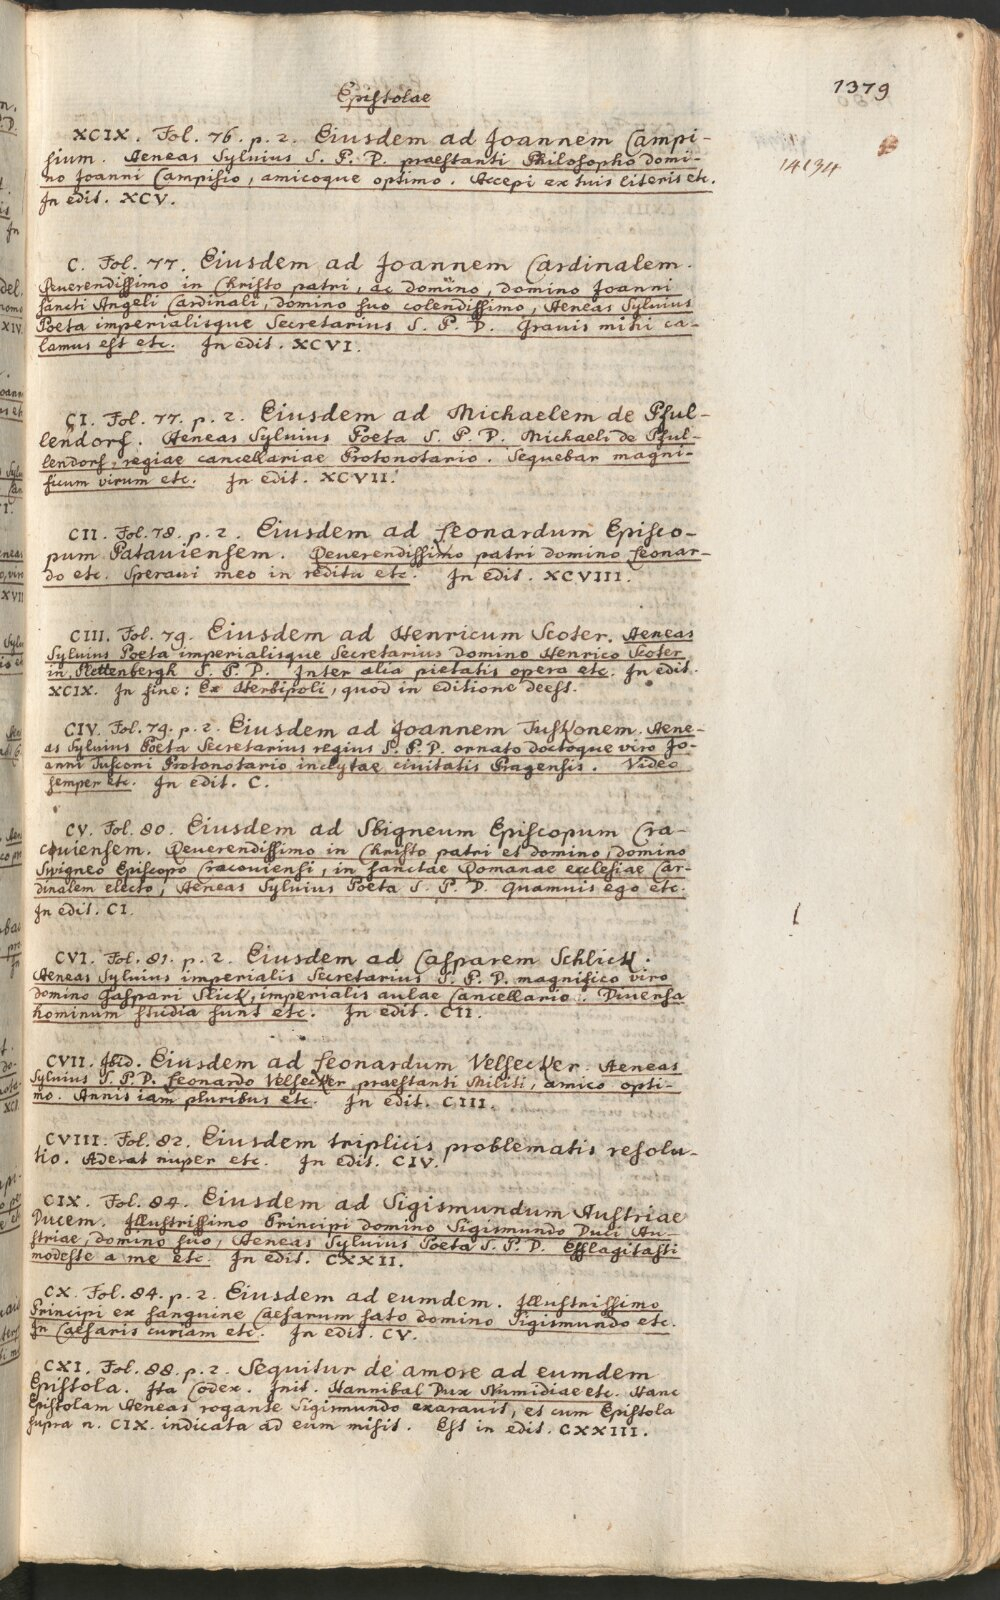 1379
Epistolae
14134
XCIX. Fol. 76. p. 2. Eiusdem ad Joannem Campi-
sium. Aeneas Sylvius S. P. D. praestanti Philosopho domi-
no Joanni Campisio, amicoque optimo. Accepi ex tuis literis etc.
In edit. XCV.
C. Fol. 77. Eiusdem ad Joannem Cardinalem.
Reuerendissimo in Christo patri, ac domino, domino Joanni
sancti Angeli Cardinali, domino suo colendissimo, Aeneas Syluius
Poeta imperialisque Secretarius S. P. D. Grauis mihi ca-
lamus est etc. In edit. XCVI.
CI. Fol. 77. p. 2. Eiusdem ad Michaelem de Pful-
lendorf. Aeneas Syluius Poeta S. P. D. Michaeli de Pful-
lendorf, regiae cancellariae Protonotario. Sequebar magni-
ficum virum etc. In edit. XCVII.
CII. Fol. 78. p. 2. Eiusdem ad Leonardum Episco-
pum Patauiensem. Reuerendissimo patri domino Leonar-
do etc. Speraui meo in reditu etc. In edit. XCVIII.
CIII. Fol. 79. Eiusdem ad Henricum Scoter. Aeneas
Syluius Poeta imperialisque Secretarius domino Henrico Scoter
in Plettenbergh S. P. D. Inter alia pietatis opera etc. In edit.
XCIX. In fine: Ex Herbipoli, quod in editione deest.
CIV. Fol. 79. p. 2. Eiusdem ad Joannem Tuskonem. Aene-
as Syluius Poeta Secretarius regius S. P. D. ornato doctoque viro Jo-
anni Tusconi Protonotario inclytae ciuitatis Pragensis. Video
semper etc. In edit. C.
CV. Fol. 80. Eiusdem ad Sbigneum Episcopum Cra-
couiensem. Reuerendissimo in Christo patri et domino, domino
Swigneo Episcopo Cracouiensi, in sanctae Romanae ecclesiae Car-
dinalem electo, Aeneas Syluius Poeta S. P. D. Quamuis ego etc.
In edit. CI.
CVI. Fol. 81. p. 2. Eiusdem ad Casparem Schlick.
Aeneas Syluius imperialis Secretarius S. P. D. magnifico viro
domino Gaspari Slick, imperialis aulae Cancellario. Diuersa
hominum studia sunt etc. In edit. CII.
CVII. Ibid. Eiusdem ad Leonardum Velsecker. Aeneas
Syluius S. P. D. Leonardo Velsecker praestanti Militi, amico opti-
mo. Annis iam pluribus etc. In edit. CIII.
CVIII. Fol. 82. Eiusdem triplicis problematis resolu-
tio. Aderat nuper etc. In edit. CIV.
CIX. Fol. 84. Eiusdem ad Sigismundum Austriae
Ducem. Illustrissimo Principi domino Sigismundo Duci Au-
striae, domino suo, Aeneas Syluius Poeta S. P. D. Efflagitasti
modeste a me etc. In edit. CXXII.
CX. Fol. 84. p. 2. Eiusdem ad eumdem. Illustrissimo
Principi ex sanguine Caesarum sato domino Sigismundo etc.
In Caesaris curiam etc. In edit. CV.
CXI. Fol. 88. p. 2. Sequitur de amore ad eumdem
Epistola. Ita Codex. Init. Hannibal Dux Numidiae etc. Hanc
Epistolam Aeneas rogante Sigismundo exarauit, et cum Epistola
supra n. CIX. indicata ad eum misit. Est in edit. CXXIII.